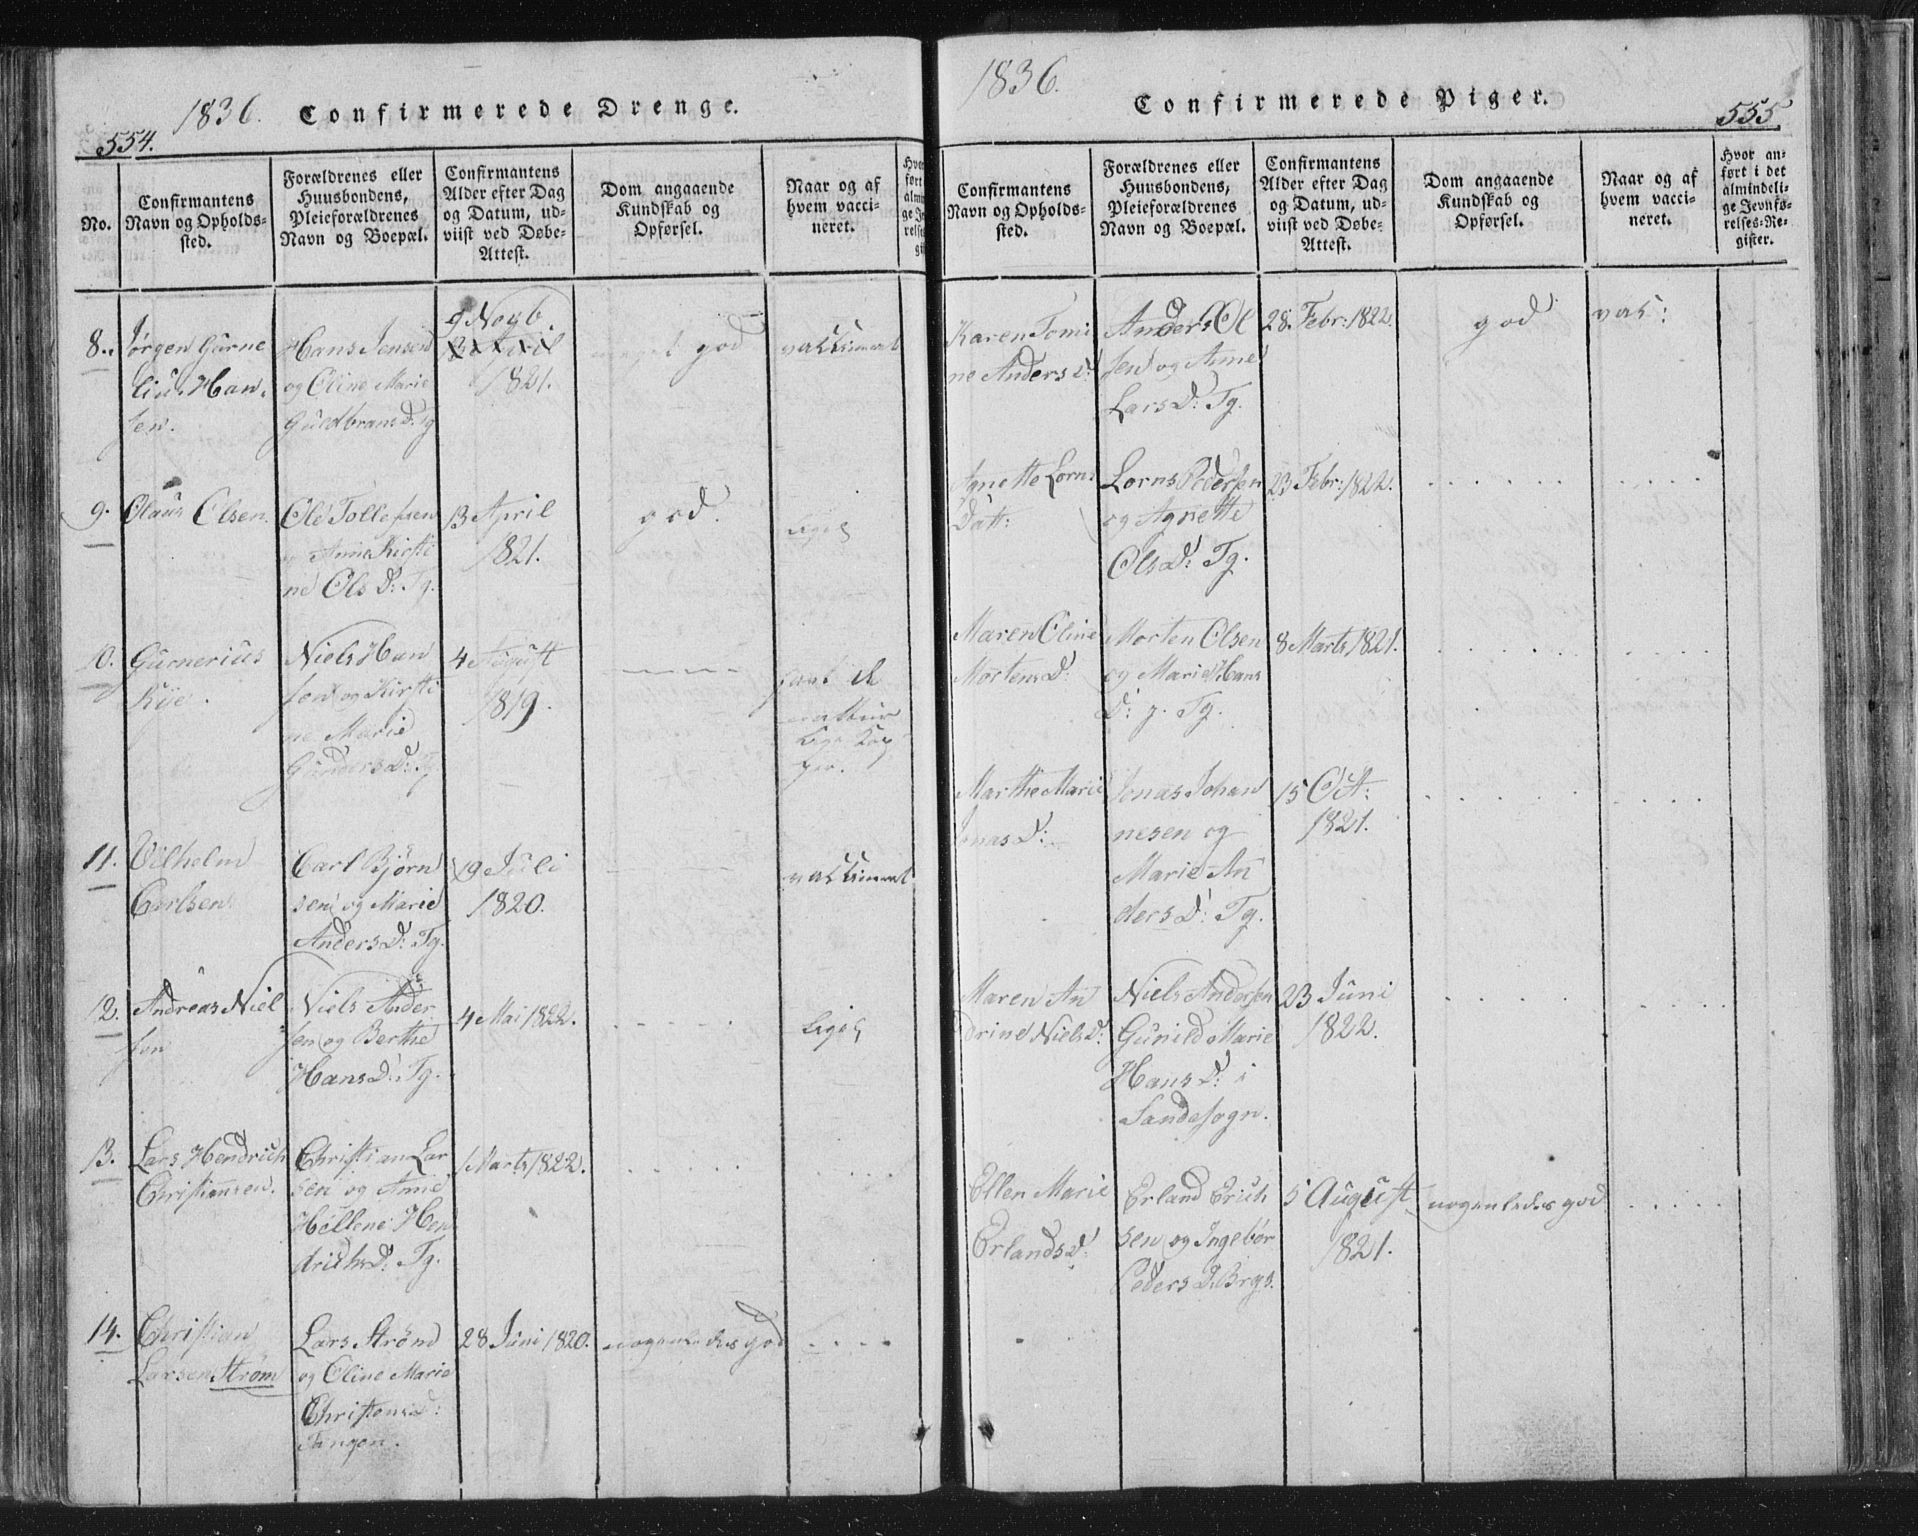 1836. Confirmerede Drenge.
554.
No.
Confirmantens
Navn og Opholds-
sted.
Forældrenes eller
Huusbondens,
Pleieforældrenes
Navn og Boepæl.
Confirmantens
Alder efter Dag
og Datum, ud-
viist ved Døbe-
Attest.
Dom angaaende
Kundskab og
Opførsel.
Naar og af
hvem vacci-
neret.
8.
Jørgen Gurne
lius Han
sen.
Hans Jensen
og Oline Marie
Guldbrans D: Tg
9 Novb
1821.
god
vaccineret
9.
Olaus Olsen.
Ole Tollefsen
og Anne Kirsti
ne Ols D: Tg.
13 April
1821.
god.
ligel
10.
Gurnerius
Kye.
Niels Han
sen og Kirsti
ne Marie
Gunders D: Tg
4 August
1819.
havt de
nattur
lige Kop
per.
11.
Vilhelm
Carlsen
Carl Bjørn
sen og Marie
Anders D: Tg.
19 Juli
1820.
vaccineret
12.
Andreas Niel
sen
Niels Ander
sen og Berthe
Hans D: Tg.
4 Mai 1822.
ligel
13.
Lars Hendrich
Christiansen.
Christian Lar
sen og Anne
Hellene Hen
drichs D: Tg.
1 Marts 1822.
14.
Christian
Larsen Strøm
Lars Strøm
og Oline Marie
Christens D:
Tangen.
28 Juni 1820.
nogenledes god
1836.
Confirmerede Piger.
555
Confirmantens
Navn og Opholds-
sted.
Forældrenes eller
Huusbondens,
Pleieforældrenes
Navn og Boepæl.
Confirmantens
Alder efter Dag
og Datum, ud-
viist ved Døbe-
Attest.
Dom angaaende
Kundskab og
Opførsel.
Naar og af
hvem vacci-
neret.
Hvor an-
ført i det
almindeli-
ge Jevnfø-
relses-Re-
gister.
Karen Tomi
ne Anders D:
Anders Ol
sen og Anne
Lars D: Tg.
28. Febr: 1822.
god
vac:
Agnette Lorns
Datt:
Lorns Pedersen
og Agnette
Ols D: Tg.
23 Febr: 1822.
Maren Oline
Mortens D:
Morten Olsen
og Marie Hans
D: p. Tg.
8 Marts 1821.
Marthe Marie
Jonas D:
Jonas Johan
nesen og
Marie An
ders D: Tg.
15 Oct:
1821.
Maren An
drine Niels D:
Niels Andersen
Gunild Marie
Hans D: i
Sande sogn.
23 Juni
1822.
Ellen Marie
Erlands D:
Erland Erich
sen og Ingebør
Peders D: Brgs.
5 August
1821.
nogenledes god